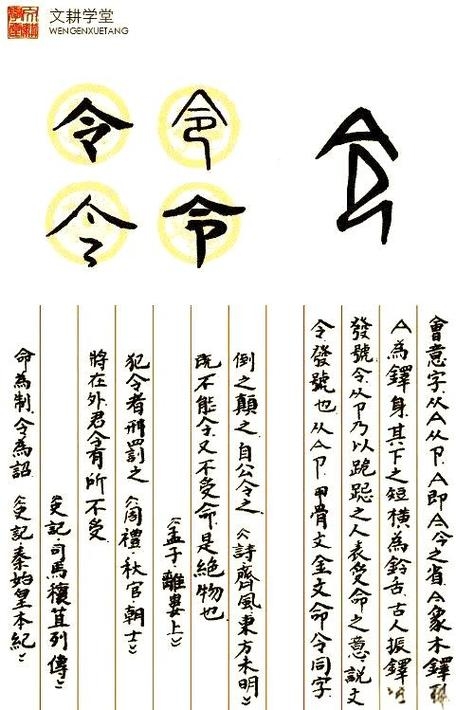 文耕学堂
WENGENXUETANG
令 令
令 令
會意字从亼从卩.亼即亼今之省亼象木鐸
亼為鐸身.其下之短橫為鈴舌.古人振鐸
發號令.从卩乃以跪跽之人表受命之意.說文
令發號也.从亼卩.甲骨文金文命令同字
倒之顛之自公令之《詩齊風.東方未明》
既不能令又不受命是絕物也
《孟子.離婁上》
犯令者刑罰之《周禮.秋官.朝士》
將在外君令有所不受
《史記.司馬穰苴列傳》
命為制.令為詔《史記秦始皇本紀》